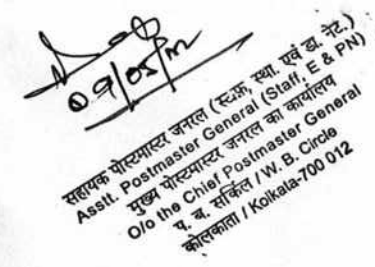 09/05/12
सहायक पोस्टमास्टर जनरल (स्टाफ, स्था. एवं डा. नेट.)
Asstt. Postmaster General (Staff, E & PN)
मुख्य पोस्टमास्टर जनरल का कार्यालय
O/o the Chief Postmaster General
प. ब. सर्किल / W. B. Circle
कोलकाता / Kolkala-700 012